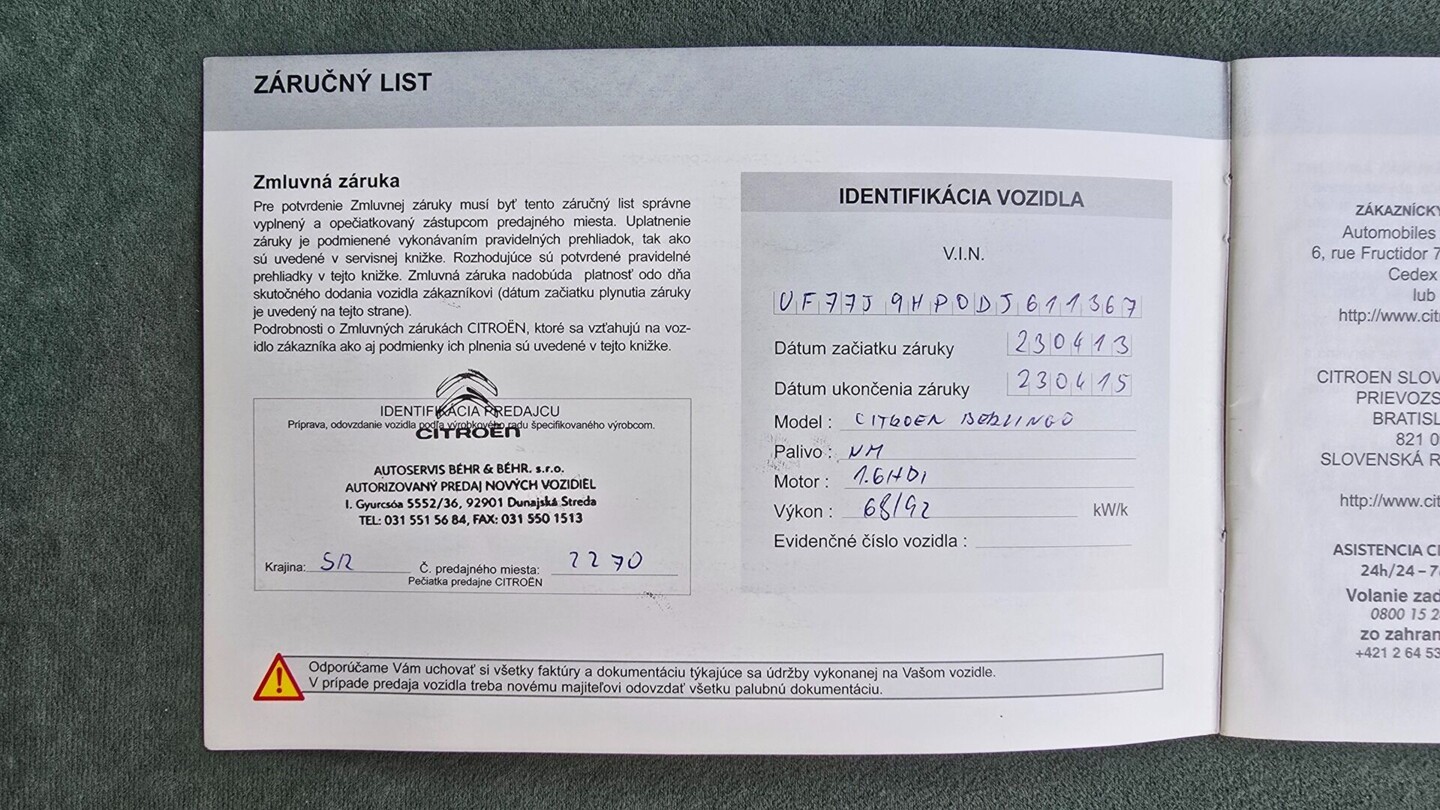 ZÁRUČNÝ LIST
Zmluvná záruka
Pre potvrdenie Zmluvnej záruky musí byť tento záručný list správne
vyplnený a opečiatkovaný zástupcom predajného miesta. Uplatnenie
záruky je podmienené vykonávaním pravidelných prehliadok, tak ako
sú uvedené v servisnej knižke. Rozhodujúce sú potvrdené pravidelné
prehliadky v tejto knižke. Zmluvná záruka nadobúda platnosť odo dňa
skutočného dodania vozidla zákazníkovi (dátum začiatku plynutia záruky
je uvedený na tejto strane).
Podrobnosti o Zmluvných zárukách CITROËN, ktoré sa vzťahujú na voz-
idlo zákazníka ako aj podmienky ich plnenia sú uvedené v tejto knižke.
IDENTIFIKÁCIA PREDAJCU
Príprava, odovzdanie vozidla podľa výrobkového radu špecifikovaného výrobcom.
CITROËN
AUTOSERVIS BÉHR & BÉHR. s.r.o.
AUTORIZOVANÝ PREDAJ NOVÝCH VOZIDIEL
I. Gyurcsóa 5552/36, 92901 Dunajská Streda
TEL: 031 551 56 84, FAX: 031 550 1513
Krajina: SR Č. predajného miesta: 2270
Pečiatka predajne CITROËN
IDENTIFIKÁCIA VOZIDLA
V.I.N.
VF77J9HP0DJ611367
Dátum začiatku záruky 230413
Dátum ukončenia záruky 230415
Model : CITROEN BERLINGO
Palivo : NM
Motor : 1.6HDI
Výkon : 68/92 kW/k
Evidenčné číslo vozidla :
Odporúčame Vám uchovať si všetky faktúry a dokumentáciu týkajúce sa údržby vykonanej na Vašom vozidle.
V prípade predaja vozidla treba novému majiteľovi odovzdať všetku palubnú dokumentáciu.
ZÁKAZNÍCKY
Automobiles
6, rue Fructidor 7
Cedex
lub
http://www.cit
CITROEN SLOV
PRIEVOZS
BRATISL
821 0
SLOVENSKÁ R
http://www.cit
ASISTENCIA CI
24h/24 – 7
Volanie zad
0800 15 2
zo zahran
+421 2 64 53